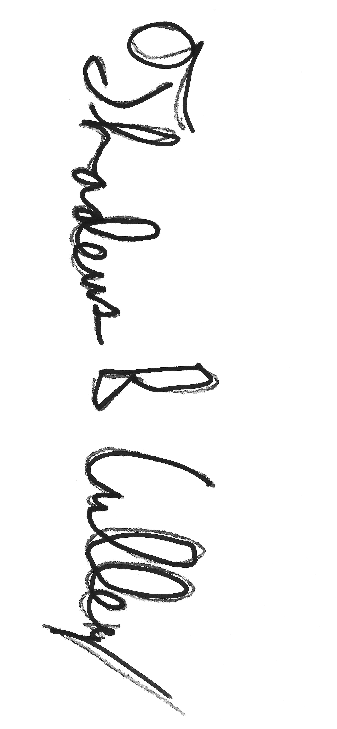 Thadeus B Culley